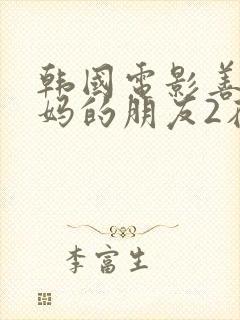 韩國電影善
妈的朋友2
李富生